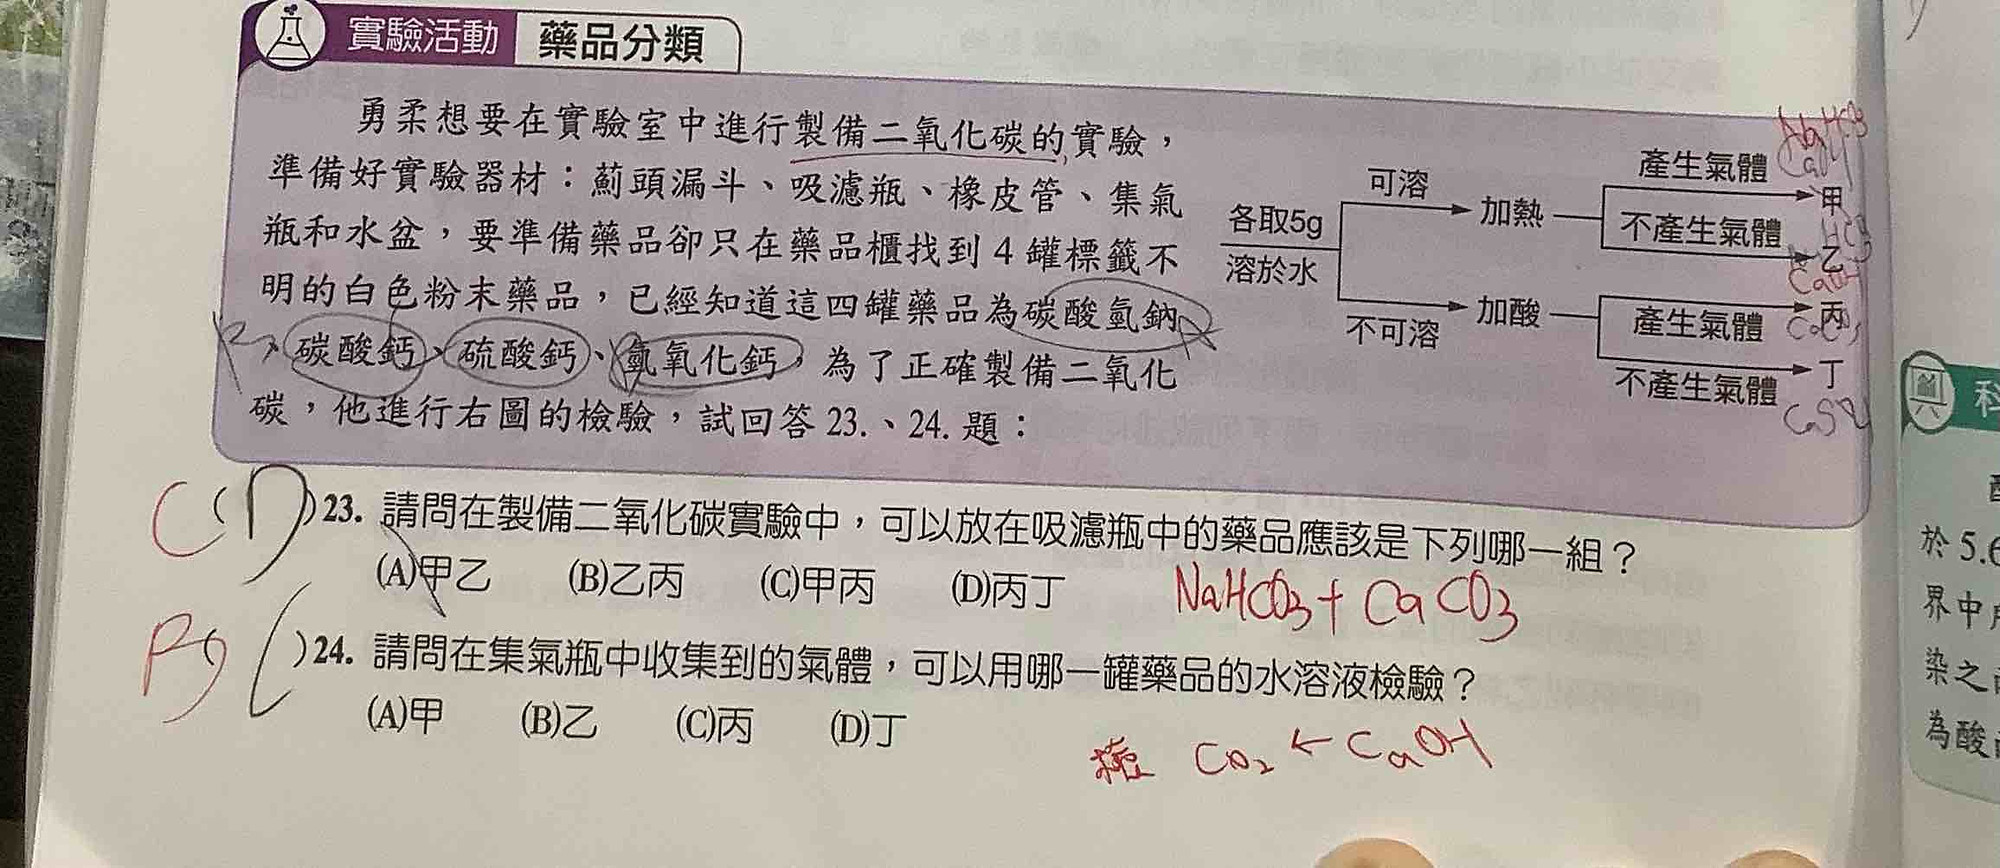 實驗活動 藥品分類
勇柔想要在實驗室中進行製備二氧化碳的實驗，
準備好實驗器材：薊頭漏斗、吸濾瓶、橡皮管、集氣
瓶和水盆，要準備藥品卻只在藥品櫃找到 4 罐標籤不
明的白色粉末藥品，已經知道這四罐藥品為碳酸氫鈉
、碳酸鈣、硫酸鈣、氫氧化鈣，為了正確製備二氧化
碳，他進行右圖的檢驗，試回答 23.、24. 題：
各取5g
溶於水
可溶
加熱
產生氣體
甲
不產生氣體
乙
不可溶
加酸
產生氣體
丙
不產生氣體
丁
CaSO4
C (D)23. 請問在製備二氧化碳實驗中，可以放在吸濾瓶中的藥品應該是下列哪一組？
(A)甲乙 (B)乙丙 (C)甲丙 (D)丙丁
NaHCO3+CaCO3
( )24. 請問在集氣瓶中收集到的氣體，可以用哪一罐藥品的水溶液檢驗？
(A)甲 (B)乙 (C)丙 (D)丁
CO2←CaOH
科
於5.6
界中
染之
為酸